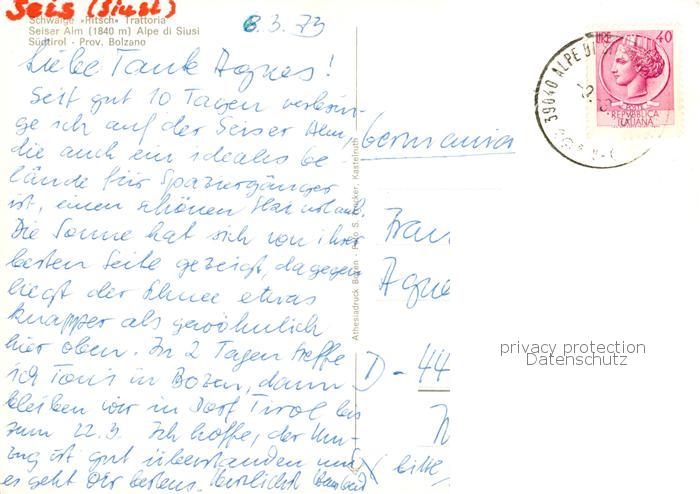 Seis (Siusi)
Schwaige »Ritsch« Trattoria
Seiser Alm (1840 m) Alpe di Siusi
Südtirol - Prov. Bolzano
8.3.73
Liebe Tante Agnes!
Seit gut 10 Tagen verbrin-
ge ich auf der Seiser Alm,
die auch ein ideales Ge-
lände für Spaziergänger
ist, einen schönen Skiurlaub.
Die Sonne hat sich von ihrer
besten Seite gezeigt, dagegen
liegt der Schnee etwas
knapper als gewöhnlich
hier oben. In 2 Tagen treffe
ich Toni in Bozen, dann
bleiben wir in Dorf Tirol bis
zum 22.3. Ich hoffe, der Um-
zug ist gut überstanden und
es geht Dir bestens. Herzlichst
Athesiadruck Bozen - Foto S. Kastelruth
39040 ALPE DI
LIRE 40
REPVBBLICA
ITALIANA
Germania
Frau
Agne
D - 44
bitte,
privacy protection
Datenschutz